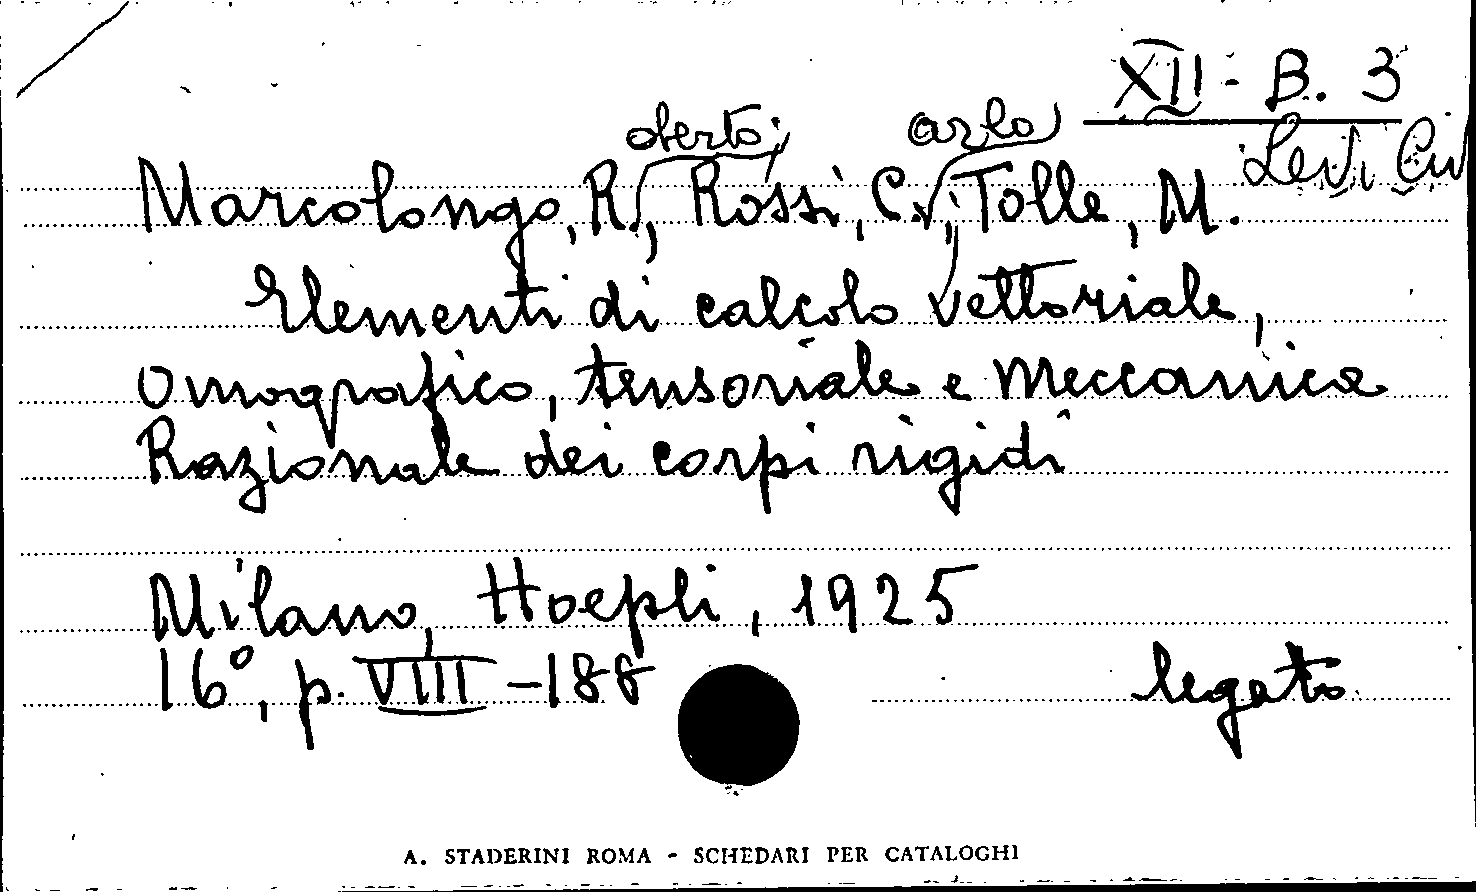 XII - B. 3
oberto; arlo Levi Civ
Marcolongo, R., Rossi, C., Tolle, M.
Elementi di calcolo vettoriale,
Omografico, tensoriale e Meccanica
Razionale dei corpi rigidi
Milano, Hoepli, 1925
16°, p. VIII - 188
legato
A. STADERINI ROMA - SCHEDARI PER CATALOGHI